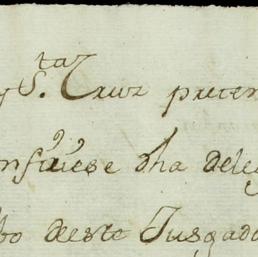 y S.ta Cruz preten
nfiriese dha deleg
bo deste Jusgado